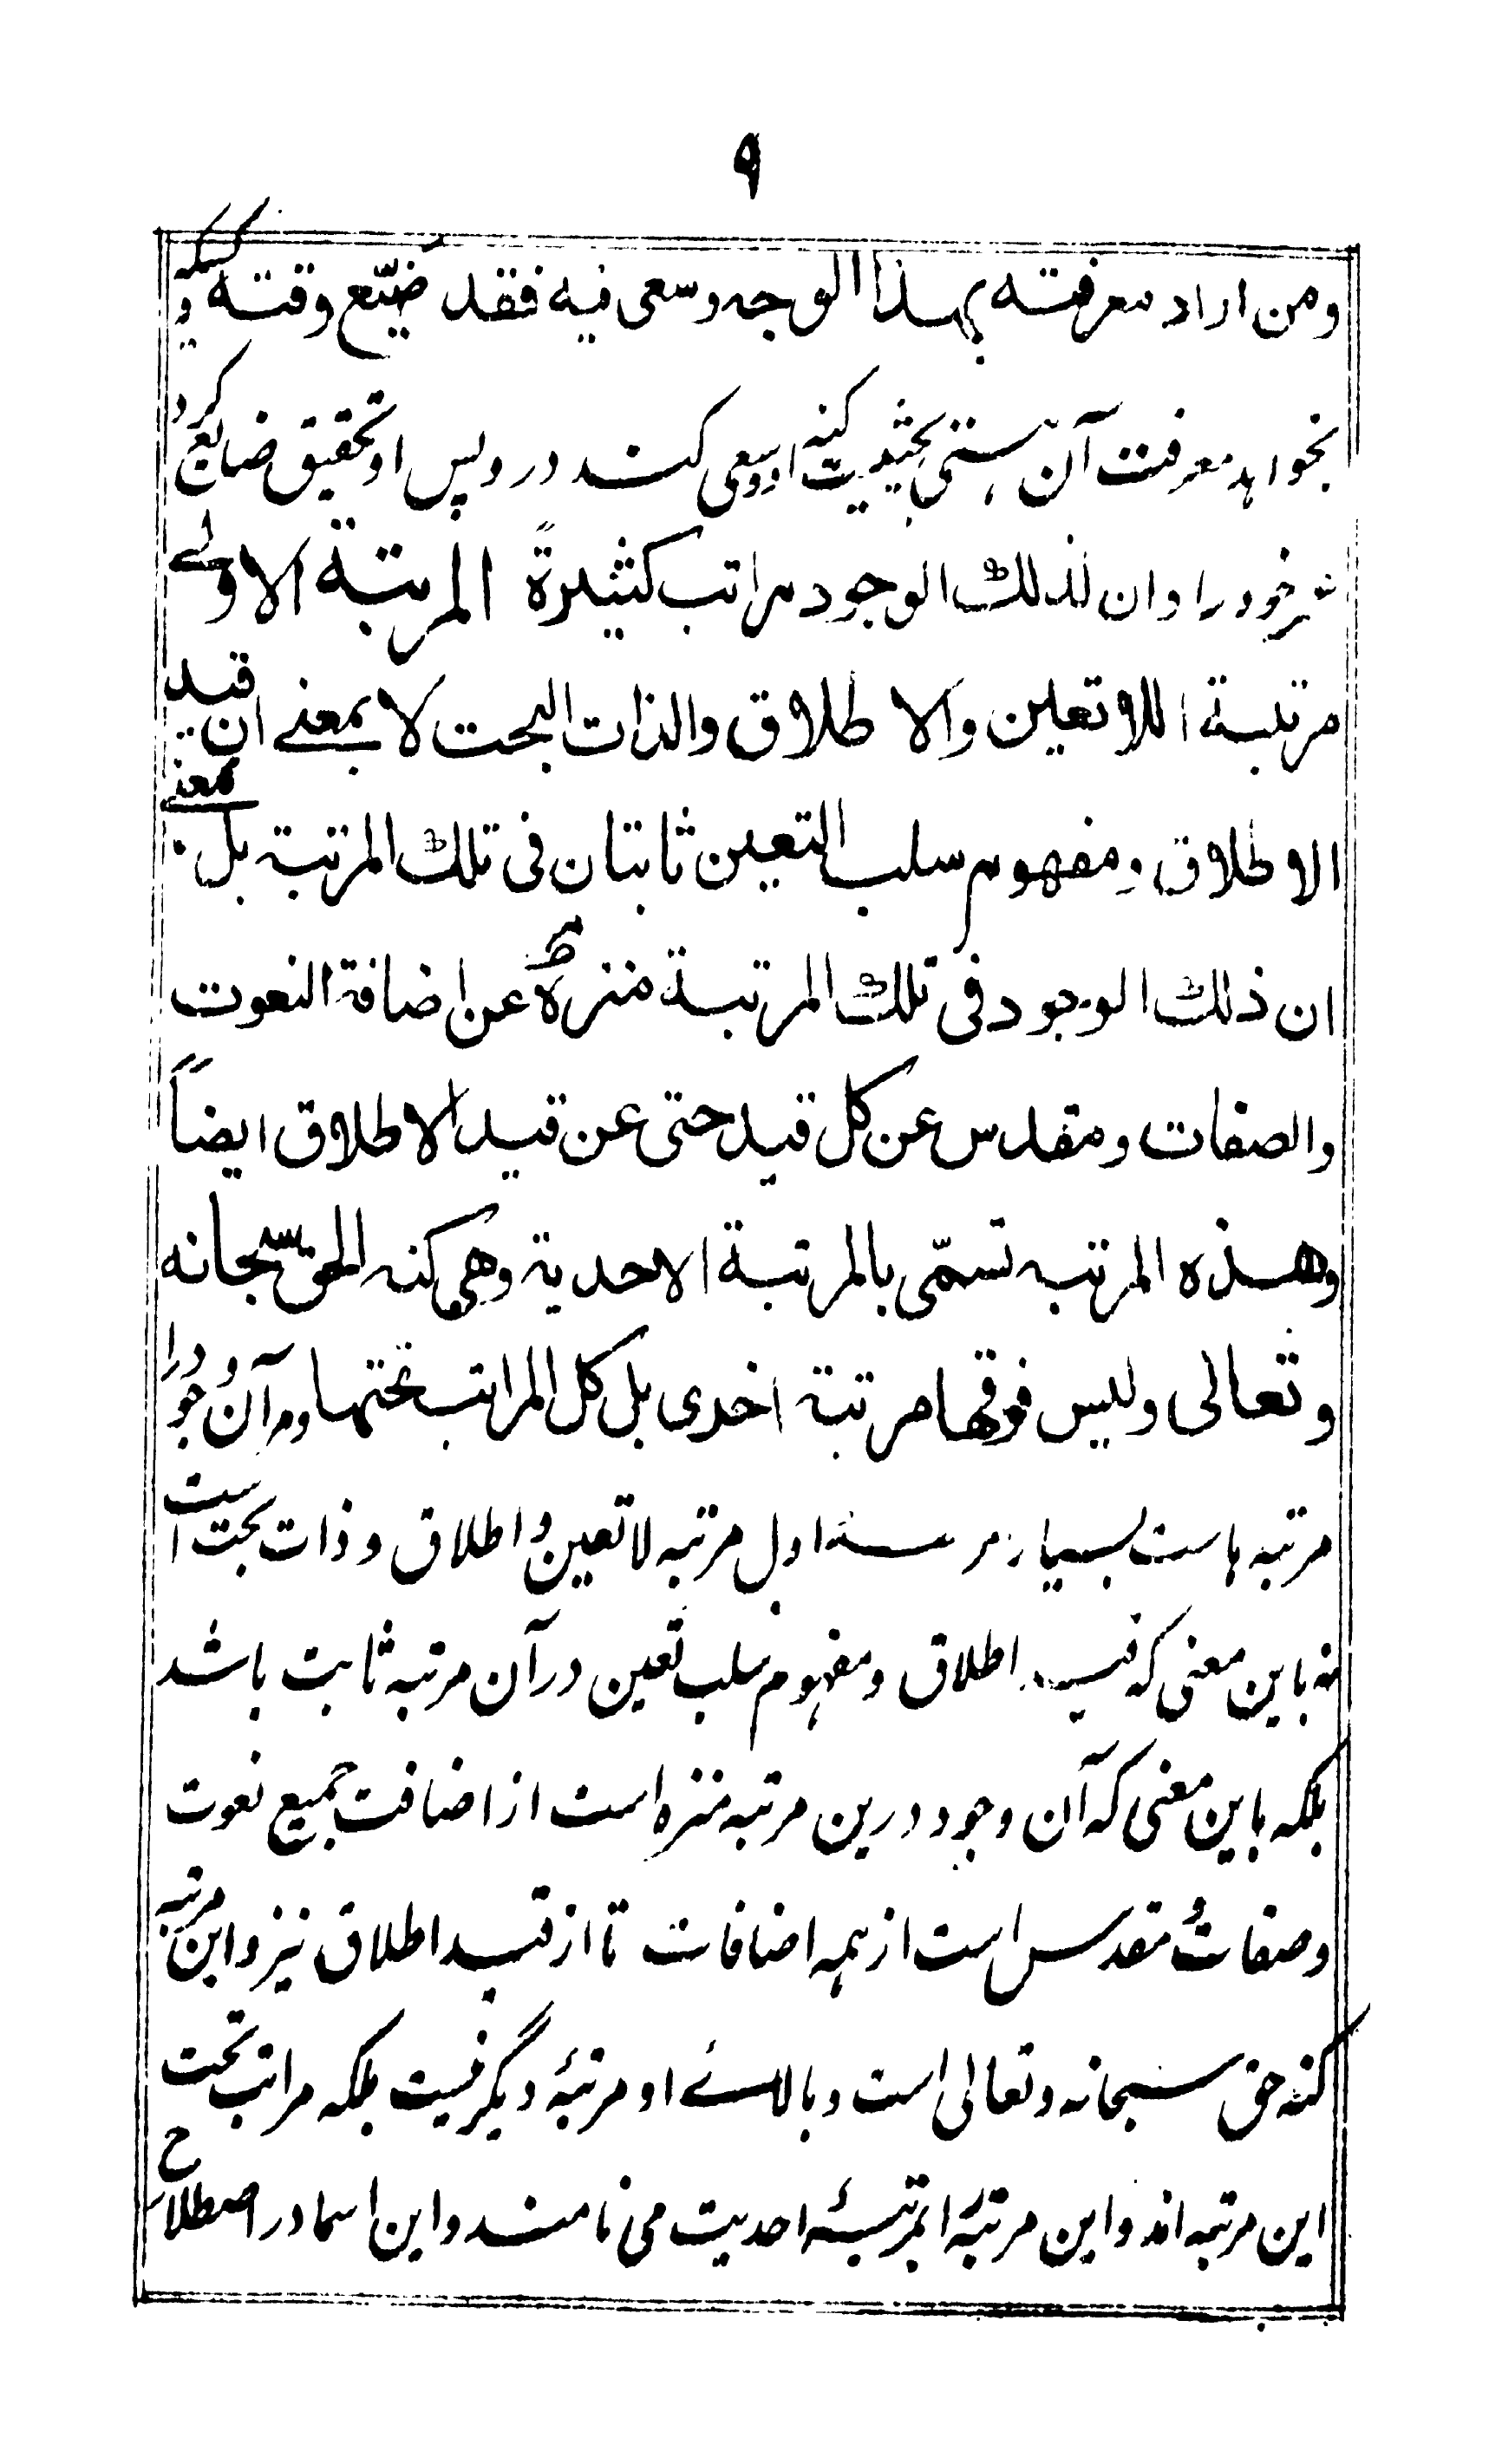 ۹
ومن اراد معرفته بهذا الوجه وسعى فيه فقد ضيّع وقته و کسیکه
بخواهد معرفت آن هستی بحیثیت کنه او وسعی کند در وپس او تحقیق ضایع کرد
خود را وان لذلك الوجود مراتب كثيرةً المرتبة الاولے
مرتبة اللاتعين والاطلاق والذات البحت لا بمعنے ان قید
الاطلاق ومفهوم سلب التعین ثابتان فی تلك المرتبة بل بمعنے
ان ذلك الوجود فی تلك المرتبة منزه عن اضافة النعوت
والصفات ومقدس عن كل قيد حتى عن قيد الاطلاق ايضاً
وهذه المرتبه تسمّى بالمرتبة الاحدية وهي كنه الحق سبحانه
وتعالى وليس فوقها مرتبة اخرى بل كل المراتب تحتها ومر آن وجود را
مرتبه هاست بسیار مرتبه اول مرتبه لا تعین و اطلاق و ذات بحت است
نه باین معنی که قید اطلاق ومفهوم سلب تعین در آن مرتبه ثابت باشد
بلکه باین معنی که آن وجود درین مرتبه منزه است از اضافت جمیع نعوت
وصفات و مقدس است از همه اضافات تا از قید اطلاق نیز واین مرتبه
کنه حق سبحانه وتعالی است وبالاے او مرتبۂ دیگر نیست بلکه مراتب تحت
این مرتبه اند واین مرتبه را بمرتبۂ احدیت می نامند واین اسما در اصطلاح